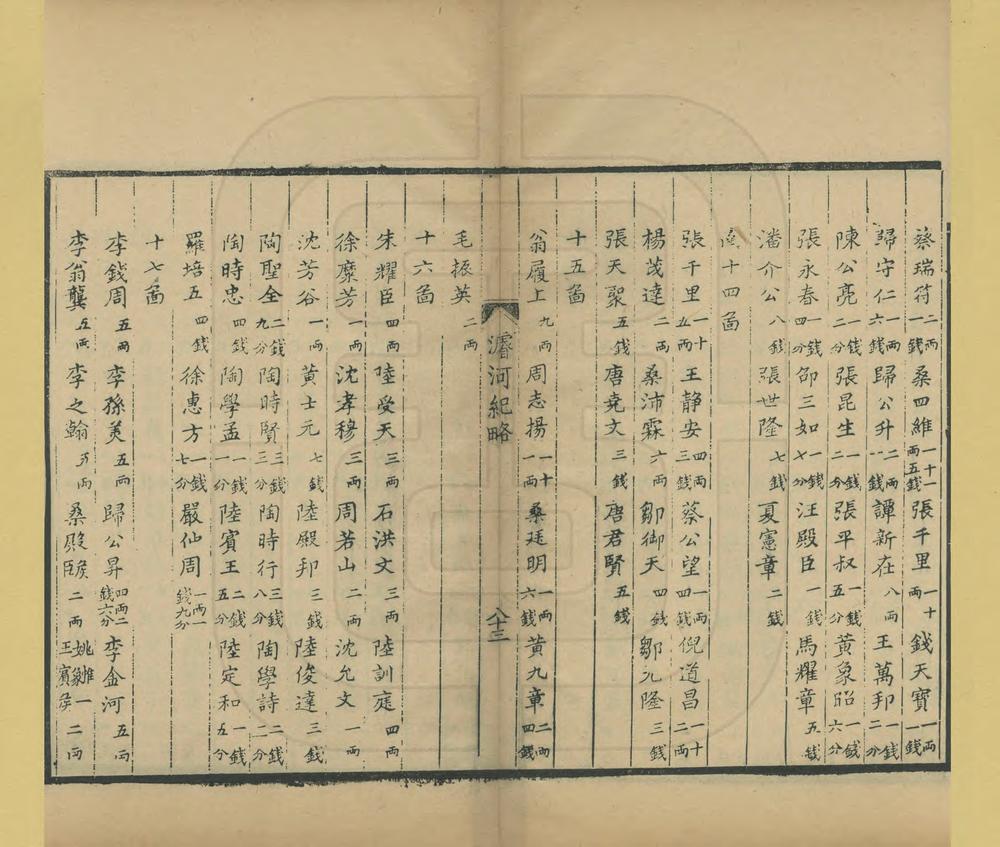 蔡瑞符二兩一錢桑四維一十一兩五錢張千里一十兩錢天寶一兩一錢
歸守仁一兩六錢歸公升二兩一錢譚新在八兩王萬邦一錢二分
陳公亮一錢二分張昆生一錢二分張平叔一錢五分黃象昭一錢六分
張永春一錢四分邵三如一錢七分汪殿臣一錢馬耀章五錢
潘介公八錢張世隆七錢夏憲章二錢
十四啚
張千里一十五兩王静安四兩三錢蔡公望一兩四錢倪道昌一十二兩
楊茂達二兩桑沛霖六兩鄒御天四錢鄒九隆三錢
張天聚五錢唐堯文三錢唐君賢五錢
十五啚
翁履上九兩周志揚一十一兩桑廷明一兩六錢黃九章二兩四錢
濬河紀略
八十三
毛振英二兩
十六啚
朱耀臣四兩陸受天三兩石洪文三兩陸訓庭四兩
徐糜芳一兩沈孝穆三兩周若山二兩沈允文一兩
沈芳谷一兩黃士元七錢陸殿邦三錢陸俊達三錢
陶聖全二錢九分陶時賢三錢三分陶時行三錢八分陶學詩二錢一分
陶時忠四錢陶學孟一錢一分陸賓王二錢五分陸定和一錢五分
羅培五四錢徐惠方一錢七分嚴仙周一兩一錢九分
十七啚
李錢周五兩李孫美五兩歸公昇四兩二錢六分李金河五兩
李翁龔五兩李之翰五兩桑殿侯臣二兩姚雝象一王賓侯二兩